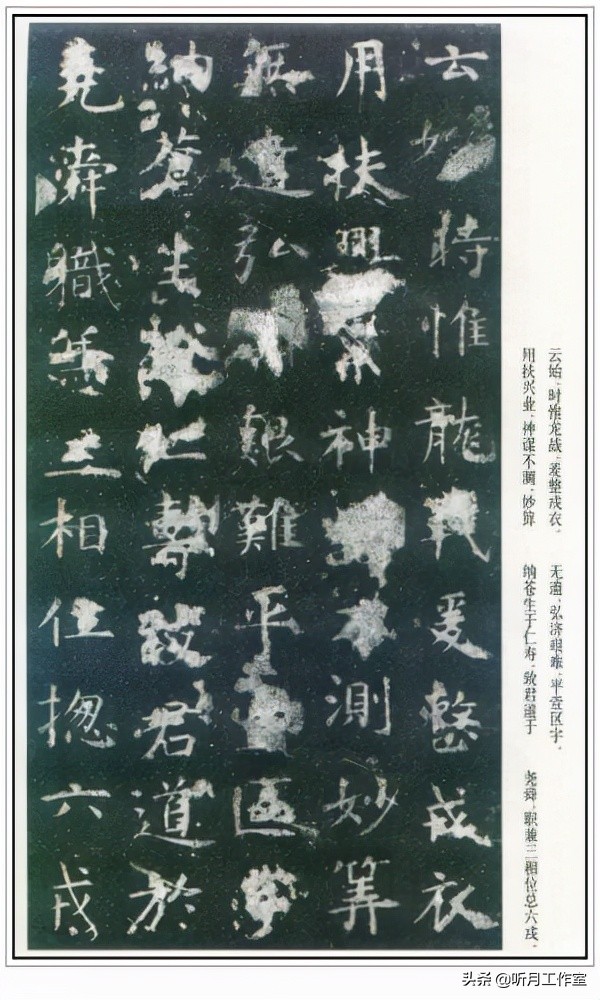 云始時惟龍戰爰整戎衣
用扶興業神謀不測妙筭
無遺弘濟艱難平壹區宇
納蒼生於仁壽致君道於
堯舜職兼三相位揔六戎
云始,时惟龙战,爰整戎衣,
用扶兴业,神谋不测,妙算
无遗,弘济艰难,平壹区宇,
纳苍生于仁寿,致君道于
尧舜,职兼三相位总六戎,
头条 @听月工作室